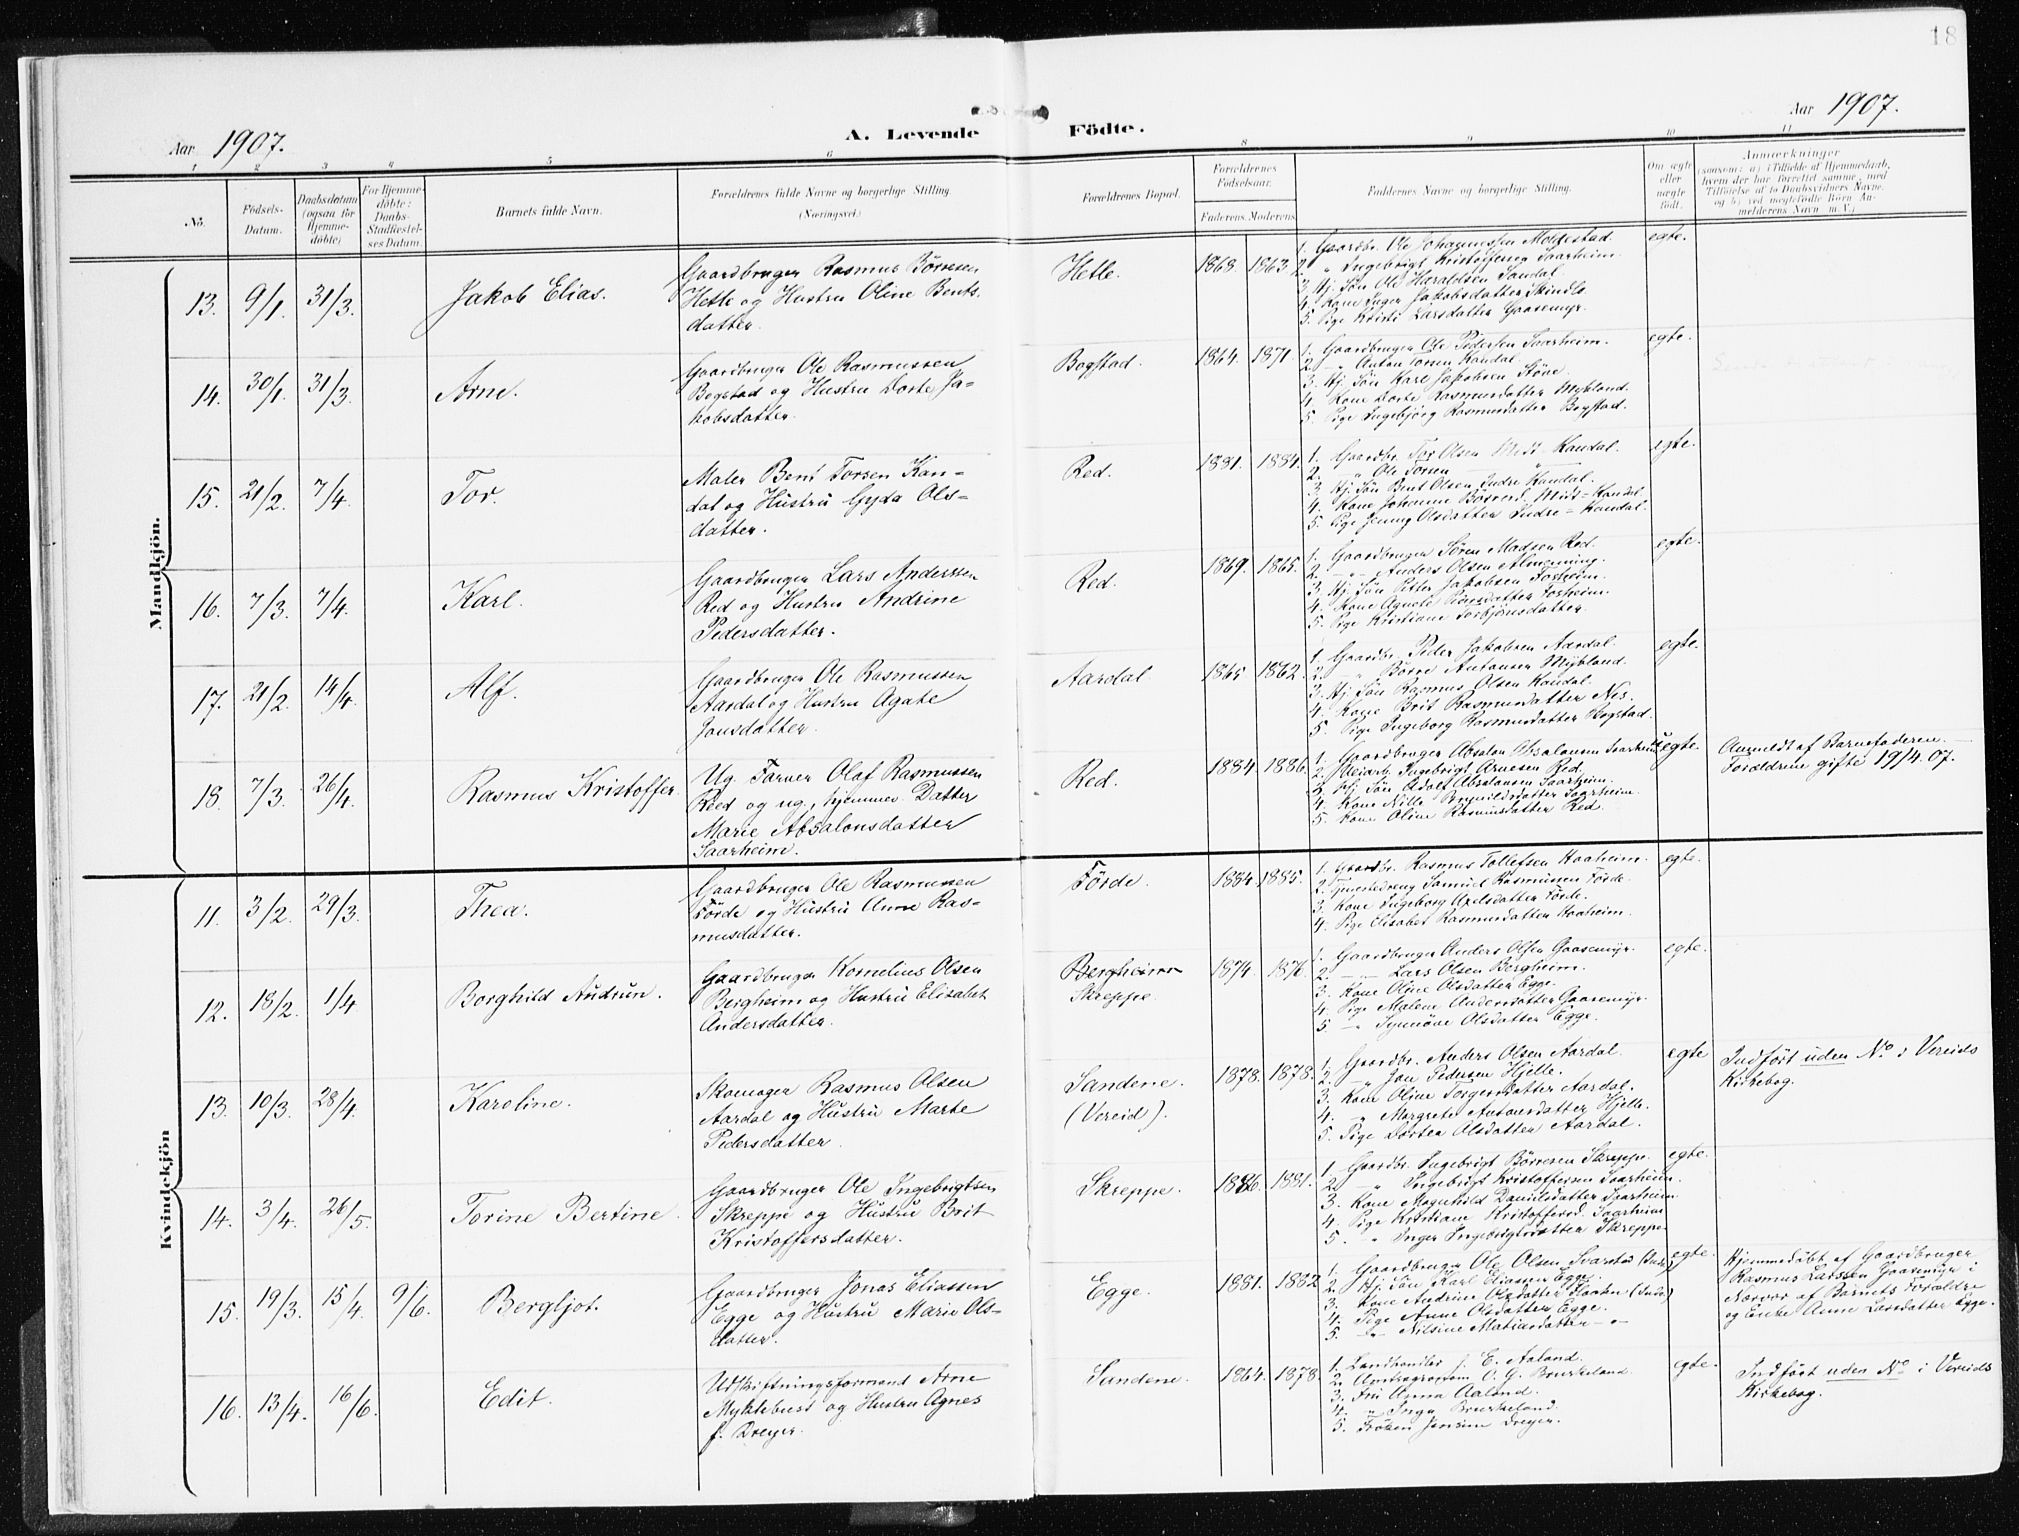 18
Aar 1907.
A. Levende Födte.
Aar 1907.
1 2 3 4 5 6 8 9 10 11
No.
Födsels-Datum.
Daabsdatum (ogsaa for Hjemmedöbte)
For Hjemmedöbte: Daabs-Stadfæstelses Datum.
Barnets fulde Navn.
Forældrenes fulde Navne og borgerlige Stilling. (Næringsvei.)
Forældrenes Bopæl.
Forældrenes Fødselsaar.
Faderens. Moderens.
Faddernes Navne og borgerlige Stilling.
Om ægte eller uægte født.
Anmærkninger (saasom: a) i Tilfælde af Hjemmedaab, hvem der har forrettet samme, med Tilföielse af to Daabsvidners Navne. og b) ved uægtefödte Börn Anmelderens Navn m. V.)
Mandkjön.
13. 9/1. 31/3. Jakob Elias.
Gaardbruger Rasmus Börresen
Hetle og Hustru Oline Bents-
datter.
Hetle. 1868. 1863.
1. Gaardbr. Ole Johannessen Moldestad.
2. " Ingebrigt Kristoffersen Saarheim.
3. Hj. Sön Ole Haraldsen Sandal.
4. Kone Inger Jakobsdatter Skindlo
5. Pige Kristi Larsdatter Gaasemyr.
egte.
14. 30/1. 31/3. Arne.
Gaardbruger Ole Rasmussen
Bogstad og Hustru Dorte Ja-
kobsdatter.
Bogstad. 1864. 1871.
1. Gaardbruger Ole Pedersen Saarheim.
2. " Anton Toren Kandal.
3. Hj. Sön Kare Jakobsen Støve.
4. Kone Dorte Rasmusdatter Mykland.
5. Pige Ingebjörg Rasmusdatter Bogstad.
egte.
15. 21/2. 7/4. Tor.
Maler Bent Torsen Kan-
dal og Hustru Gyda Ols-
datter.
Red. 1881. 1884.
1. Gaardbr. Tor Olsen Midt-Kandal.
2. " Ole Torsen "
3. Hj. Sön Bent Olsen Indre Kandal.
4. Kone Johanne Börresd. Midt-Kandal
5. Pige Jenny Olsdatter Indre-Kandal.
egte.
16. 7/3. 7/4. Karl.
Gaardbruger Lars Anderssen
Red og Hustru Andrine
Pedersdatter.
Red. 1869. 1865.
1. Gaardbruger Sören Madsen Red.
2. " Anders Olsen Almenning.
3. Hj. Sön Petter Jakobsen Fosheim.
4. Kone Agnete Pedersdatter Fosheim.
5. Pige Kristiane Torbjörnsdatter.
egte.
17. 21/2. 14/4. Alf.
Gaardbruger Ole Rasmussen
Aardal og Hustru Agate
Jonsdatter.
Aardal. 1865 1862.
1. Gaardbr. Peder Jakobsen Aardal.
2. " Börre Antonsen Mykland.
3. Hj. Sön Rasmus Olsen Kandal.
4. Kone Brit Rasmusdatter Nes.
5. Pige Ingeborg Rasmusdatter Bogstad.
egte.
18. 7/3. 26/4. Rasmus Kristoffer.
Ug. Farver Olaf Rasmussen
Red og ug., hjemmev. Datter
Marie Absalonsdatter
Saarheim.
Red. 1884. 1886.
1. Gaardbruger Absalon Absalonsen Saarheim
2. Veiarb. Ingebrigt Arnesen Red.
3. Hj. Sön Adolf Absalonsen Saarheim.
4. Kone Nille Bogmildsdatter Saarheim.
5. Kone Oline Rasmusdatter Red.
egte.
Anmeldt af Barnefaderen.
Forældrene gifte 19/4. 07.
Kvindekjön
11. 3/2. 29/3. Thea.
Gaardbruger Ole Rasmussen
Förde og Hustru Anne Ras-
musdatter.
Förde. 1884. 1885.
1. Gaardbr. Rasmus Tollefsen Haaheim.
2. Tjenestedreng Samuel Rasmussen Förde.
3. Kone Ingeborg Axelsdatter Förde.
4. Pige Elisabet Rasmusdatter Haaheim.
egte.
12. 18/2. 1/4 Borghild Audrun.
Gaardbruger Kornelius Olsen
Bergheim og Hustru Elisabet
Andersdatter.
Bergheim
Skreppe. 1874. 1876.
1. Gaardbruger Anders Olsen Gaasemyr.
2. " Lars Olsen Bergheim.
3. Kone Oline Olsdatter Egge.
4. Pige Malene Andersdatter Gaasemyr.
5. " Synnöve Olsdatter Egge.
egte.
13. 10/3. 28/4. Karoline.
Skomager Rasmus Olsen
Aardal og Hustru Marte
Pedersdatter.
Sandene.
(Vereid). 1878. 1878.
1. Gaardbr. Anders Olsen Aardal.
2. " Jon Pedersen Hjelle.
3. Kone Oline Torgersdatter Aardal.
4. " Margrete Antonsdatter Hjelle.
5. Pige Dorten Olsdatter Aardal.
egte
Indfört uden No i Vereids
Kirkebog.
14. 3/4. 26/5. Torine Bertine.
Gaardbruger Ole Ingebrigtsen
Skreppe og Hustru Brit
Kristoffersdatter.
Skreppe. 1886. 1881.
1. Gaardbr. Ingebrigt Börresen Skreppe.
2. " Ingebrigt Kristoffersen Saarheim.
3. Kone Magnhild Danielsdatter Saarheim.
4. Pige Kristiane Kristoffersd. Saarheim
5. " Inger Ingebrigtsdatter Skreppe
egte.
15. 19/3. 15/4. 9/6. Bergljot.
Gaardbruger Jonas Eliassen
Egge og Hustru Marie Ols-
datter.
Egge. 1881. 1882
1. Gaardbruger Ole Olsen Svartes
2. Hj. Sön Karl Eliassen Egge.
3. Kone Andrine Olsdatter
4. Pige Anne Olsdatter Egge.
5. " Nilsine Matiasdatter "
egte.
Hjemmedöbt af Gaardbruger
Rasmus Larssen Gaasemyr i
Nærvær af Barnets Forældre
og Enke Anne Larsdatter Egge.
16. 13/4. 16/6. Edit.
Udskiftningsformand Arne
Myklebust og Hustru Agnes
f. Dreyer.
Sandene. 1864. 1878.
1. Landhandler J. E. Aaland.
2. Amtsagronom O. G. Bruheland
3. Fru Anna Aaland.
4. " Inga Bruheland.
5. Fröken Jensine Dreyer.
egte.
Indfört uden No i Vereids
Kirkebog.